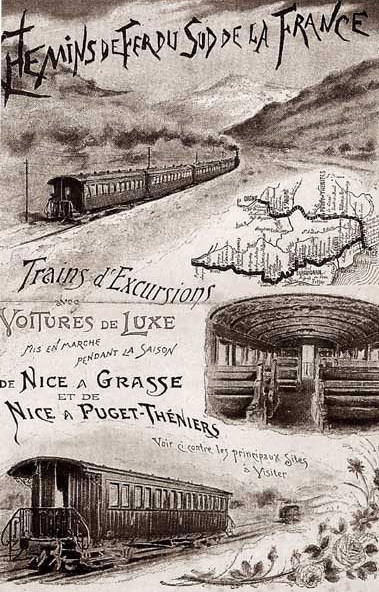 CHEMINS DE FER DU SUD DE LA FRANCE
Trains d'Excursions
avec
VOITURES DE LUXE
MIS EN MARCHE
PENDANT LA SAISON
DE NICE A GRASSE
ET DE
NICE A PUGET-THÉNIERS
Voir ci contre les principaux Sites
à Visiter